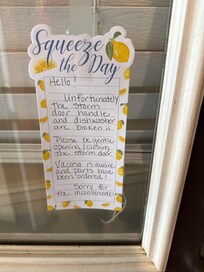 Squeeze
the Day
Hello!
Unfortunately
the storm
door handle
and dishwasher
are broken :(
Please be gentle
opening/closing
the storm door.
Vacasa is aware
and parts have
been ordered!
Sorry for
the inconvenience